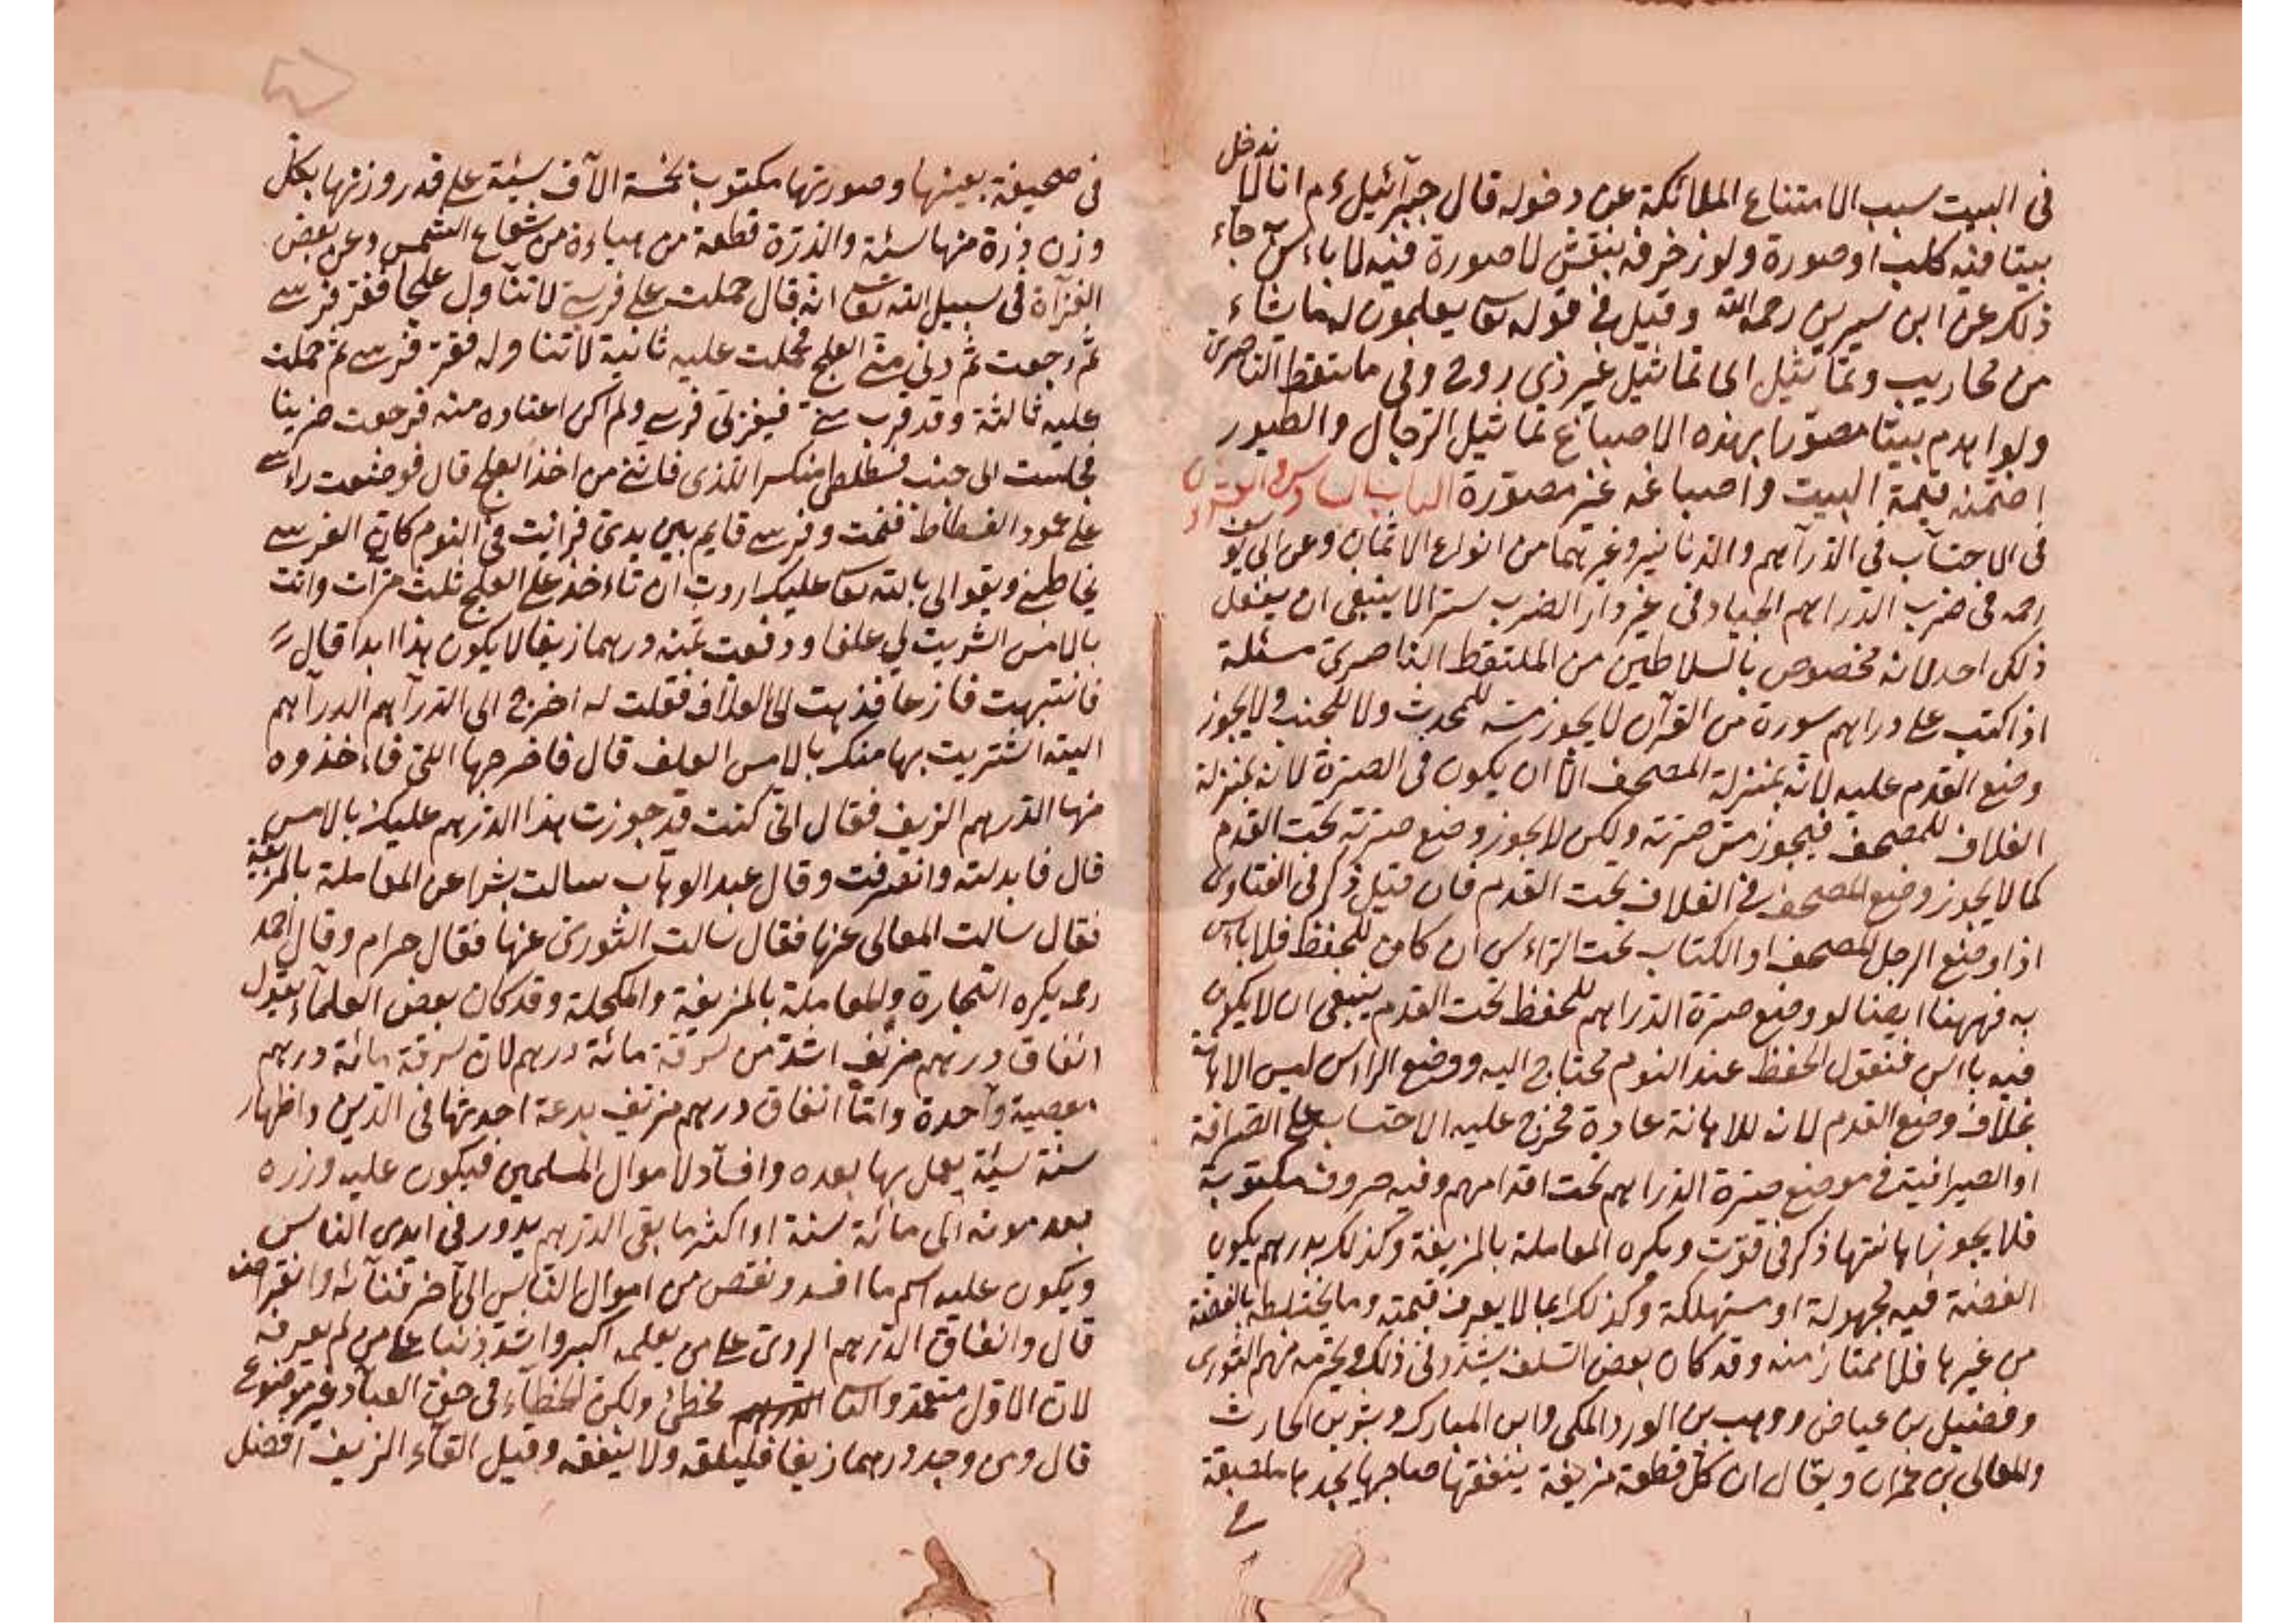 في البيت سبب الامتناع الملائكة عن دخوله قال جبرآئيل ءم انا لا ندخل
بيتا فيه كلب او صورة ولو زخرفه بنقش لا صورة فيه لا باءس جآء
ذلك عن ابن سيرين رحمه الله وقيل في قوله تعا يعلمون له ما يشاء
من محاريب وتماثيل اى تماثيل غير ذى روح وفى ملتقط الناصرى
ولو اهدم بيتا مصورا بهذه الاصباغ تماثيل الرجال والطيور
اضمنه قيمة البيت واصباغه غير مصورة الباب السادس والعشرون
فى الاحتسآب في الدرآهم والدنانير وغيرهما من انواع الاثمان وعن ابى يوسف
رحمه فى ضرب الدراهم الجياد فى غير دار الضرب سترا لا ينبغى ان يفعل
ذلك احد لانه مخصوص بالسلاطين من الملتقط الناصرى مسئلة
اذا كتب على دراهم سورة من القرآن لا يجوز مسه للمحدث ولا للجنب ولا يجوز
وضع القدم عليه لانه بمنزلة المصحف الا ان يكون فى الصرة لانه بمنزلة
الغلاف للمصحف فيجوز مس صرته ولكن لا يجوز وضع صرته تحت القدم
كما لا يجوز وضع المصحف فى الغلاف تحت القدم فان قيل ذكر فى الفتاوى
اذا وضع الرجل المصحف او الكتاب تحت الراءس ان كان للحفظ فلا باءس
به فههنا ايضا لو وضع صرة الدراهم للحفظ تحت القدم ينبغى ان لا يكون
فيه باءس فنقول الحفظ عند النوم محتاج اليه ووضع الراس ليس الاهانة
بخلاف وضع القدم لانه للاهانة عادة فخرج عليه الاحتساب على الصرافة
او الصيرافية فى موضع صرة الدراهم تحت اقدامهم وفيه حروف مكتوبة
فلا يجوز اهانتها ذكر فى قوت ويكره المعاملة بالمزيفة وكذلك بدرهم يكون
الفضة فيه مجهولة او مستهلكة وكذلك بما لا يعرف قيمته وما يختلطه بالفضة
من غيرها فلا يمتاز منه وقد كان بعض السلف يشدد فى ذلك ويحرمه منهم الثورى
وفضيل بن عياض ووهب بن الورد المكى وابن المبارك وبشر بن الحارث
والمعالى بن عمران ويقال ان كل قطعة مزيفة ينفقها صاحبها يجدها ملصقة
فى صحيفة بعينها وصورتها مكتوب بخمسة الآف سيئة على قدر وزنها بكل
وزن ذرة منها سيئة والذرة قطعة من هباءة من شعاع الشمس وعن بعض
الغزآة فى سبيل الله تعا انه قال حملت على فرسى لاتناول علجا فقز فرسى
ثم رجعت ثم دنى منى العلج فحملت عليه ثانية لاتناوله فقز فرسى ثم حملت
عليه ثالثة وقد قرب منى فيقز بى فرسى ولم اكن اعتاده منه فرجعت حزينا
فجلست الى جنب فسطاطى منكسرا للذى فاتنى من اخذ العلج قال فوضعت راءسى
على عمود الفسطاط فنمت وفرسى قايم بين يدى فرايت فى النوم كان الفرسى
يخاطبنى ويقو لى بالله تعا عليك اردت ان تاءخذ على العلج ثلث مرات وانت
بالامس اشريت لى علفا ودفعت ثمنه درهما زيفا لا يكون هذا ابدا قال
فانتبهت فازعا فذهبت الى العلاف فقلت له اخرج الى الدرآهم الدرآهم
التى اشتريت بها منك بالامس العلف قال فاخرجها الى فاءخذوه
منها الدرهم الزيف فقال انى كنت قد جوزت هذا الدرهم عليك بالامس
قال فابدلته وانصرفت وقال عبد الوهاب سالت بشرا عن المعاملة بالمزيفة
فقال سالت المعالى عنها فقال سالت الثورى عنها فقال حرام وقال احمد
رحمه يكره التجارة والمعاملة بالمزيفة والمكحلة وقد كان بعض العلمآء يقول
انفاق درهم مزيف اشد من سرقة مائة درهم لان سرقة مائة درهم
معصية وآحدة واما انفاق درهم مزيف بدعة احدثها فى الدين واظهار
سنة سيئة يعمل بها بعده وافسآد لاموال المسلمين فيكون عليه وزره
بعد موته الى مائة سنة او اكثر ما بقى الدرهم يدور فى ايدى الناس
ويكون عليه اسم ما افسد ونقص من اموال الناس الى آخر فنآئه وانقراضه
قال وانفاق الدرهم الردى على من يعلمه اكبر واشد ذنبا على من لم يعرفه
لان الاول متعمد والثا مخطئ ولكن الخطآء فى حق العبآد غير موضوع
قال ومن وجد درهما زيفا فليلقه ولا ينفقه وقيل القآء الزيف افضل